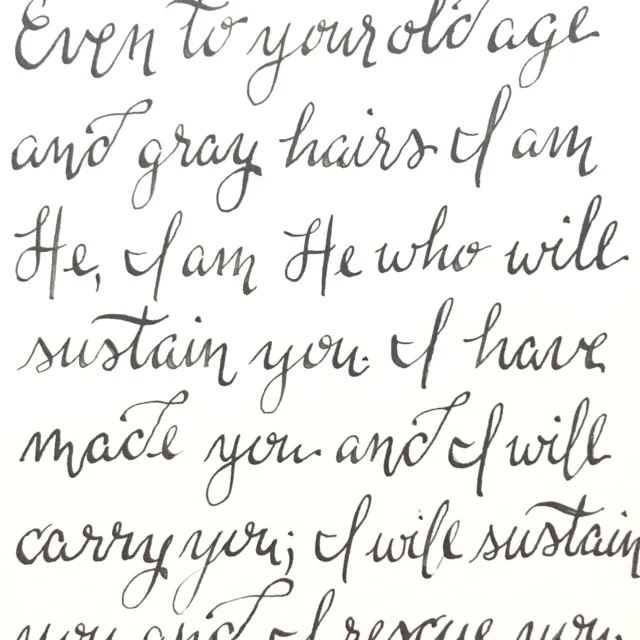 Even to your old age
and gray hairs I am
He, I am He who will
sustain you. I have
made you and I will
carry you; I will sustain
you and I rescue you.